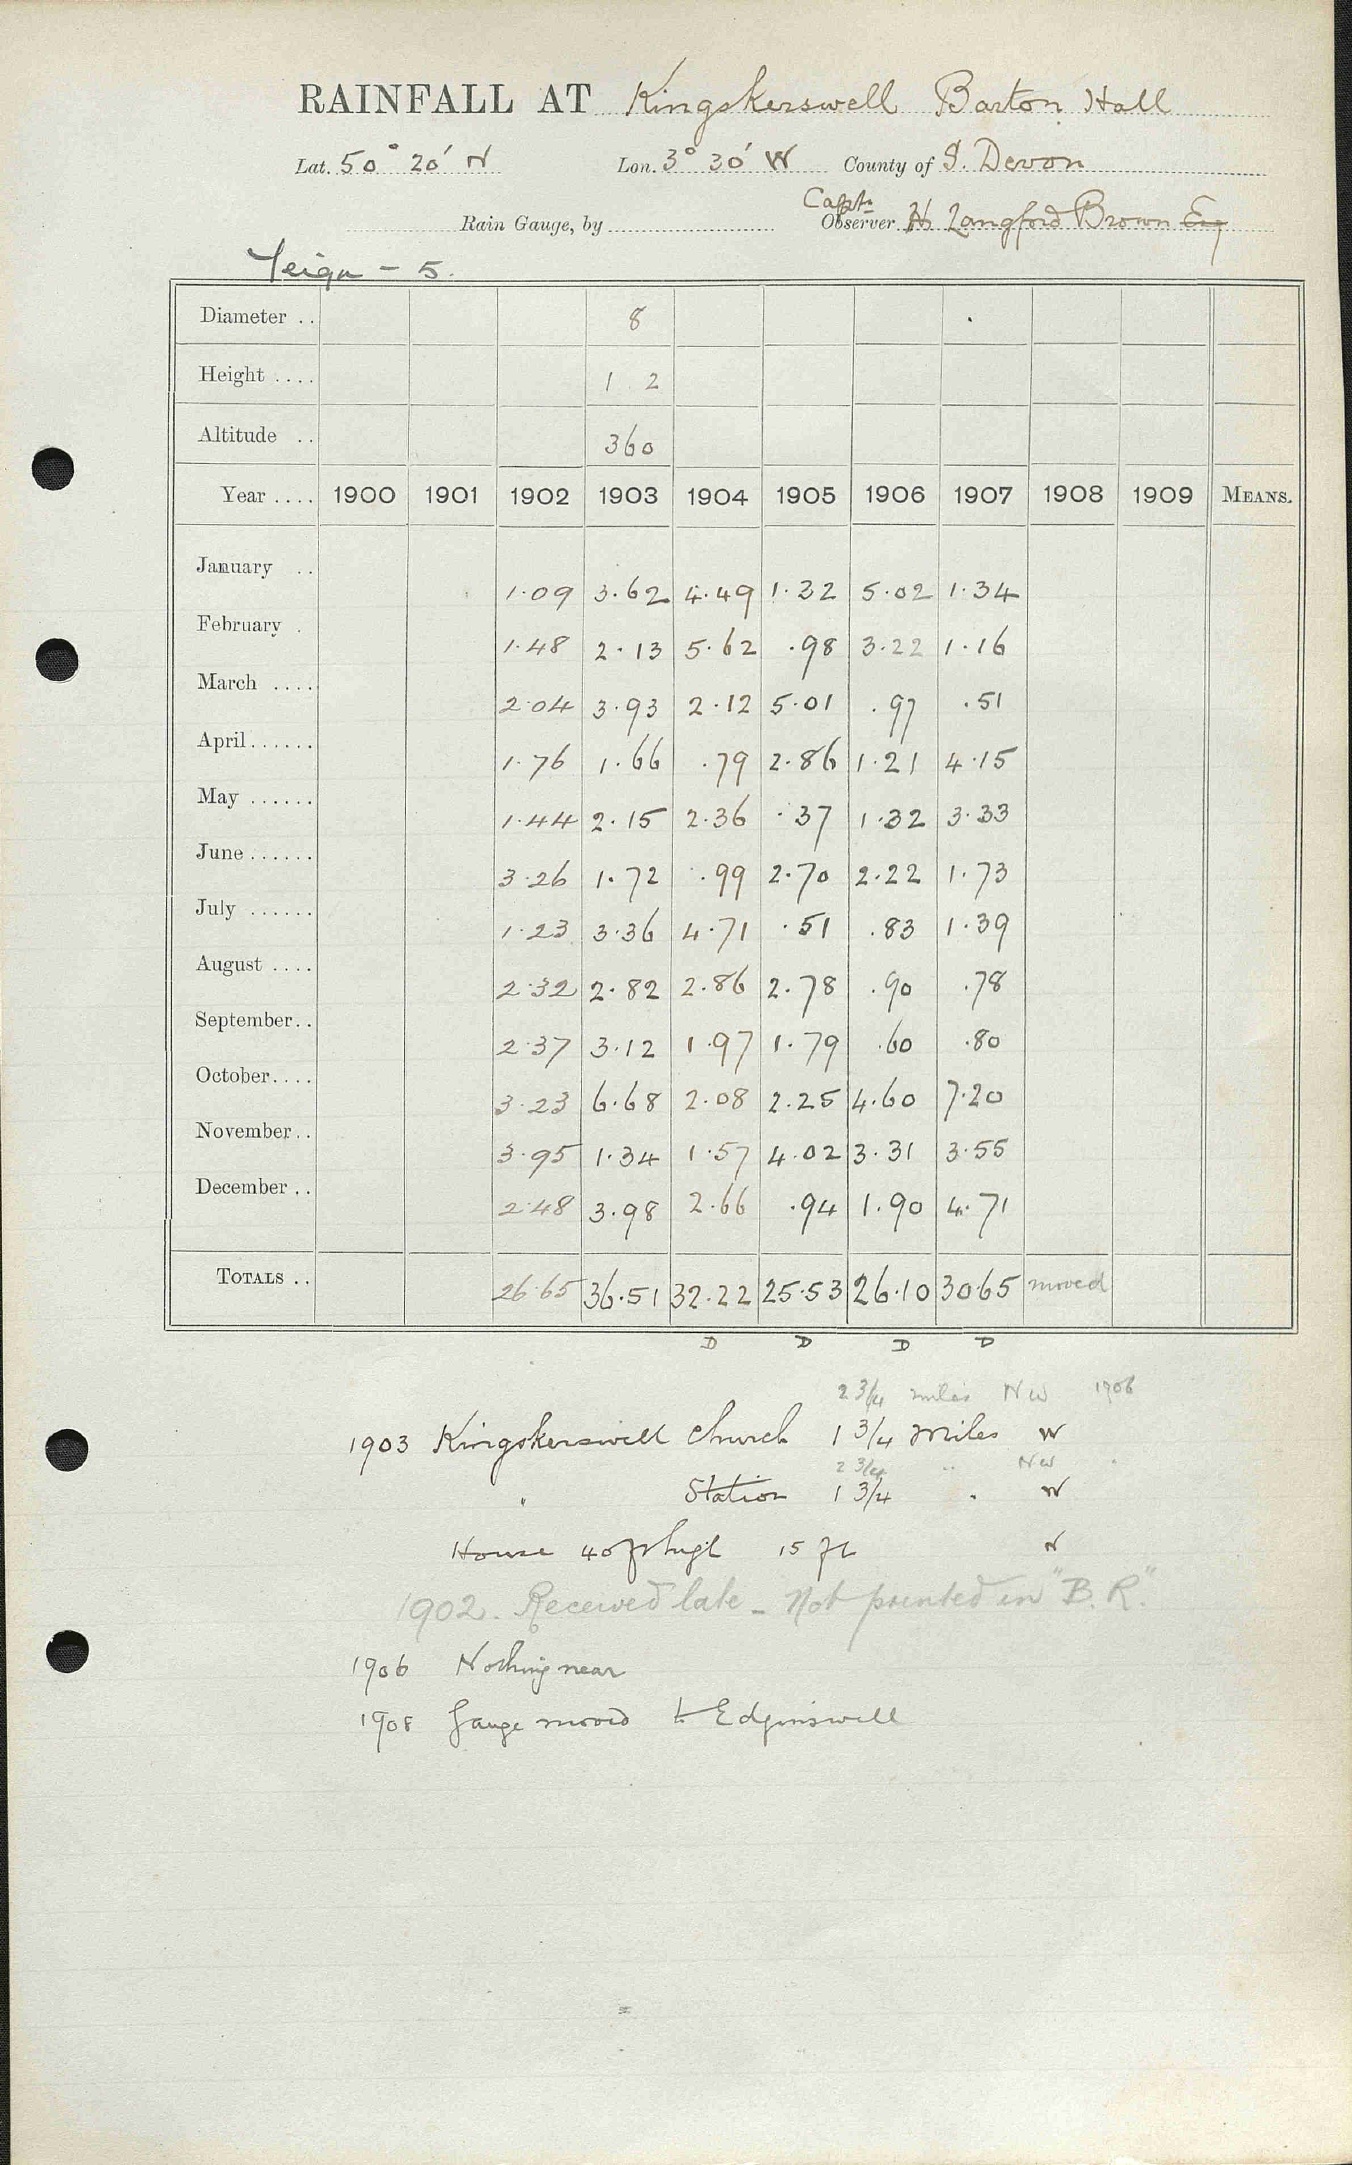 RAINFALL AT Kingskerswell Barton Hall
Lat. 50° 20' N Lon. 3° 30' W County of S. Devon
Capt.
Rain Gauge, by Observer H Langford Brown Esq
Teign - 5.
Diameter .. 8
Height .... 1 2
Altitude .. 360
Year .... 1900 1901 1902 1903 1904 1905 1906 1907 1908 1909 MEANS.
January .. 1.09 3.62 4.49 1.32 5.02 1.34
February . 1.48 2.13 5.62 .98 3.22 1.16
March .... 2.04 3.93 2.12 5.01 .97 .51
April...... 1.76 1.66 .79 2.86 1.21 4.15
May ...... 1.44 2.15 2.36 .37 1.32 3.33
June...... 3.26 1.72 .99 2.70 2.22 1.73
July ...... 1.23 3.36 4.71 .51 .83 1.39
August .... 2.32 2.82 2.86 2.78 .90 .78
September.. 2.37 3.12 1.97 1.79 .60 .80
October.... 3.23 6.68 2.08 2.25 4.60 7.20
November.. 3.95 1.34 1.57 4.02 3.31 3.55
December .. 2.48 3.98 2.66 .94 1.90 4.71
TOTALS .. 26.65 36.51 32.22 25.53 26.10 30.65 moved
D D D D
2 3/4 miles NW 1906
1903 Kingskerswell Church 1 3/4 Miles W
2 3/4 " NW "
" Station 1 3/4 " W
House 40 ft high 15 ft N
1902. Received late - Not printed in "B. R."
1906 Nothing near
1908 Gauge moved to Edginswell